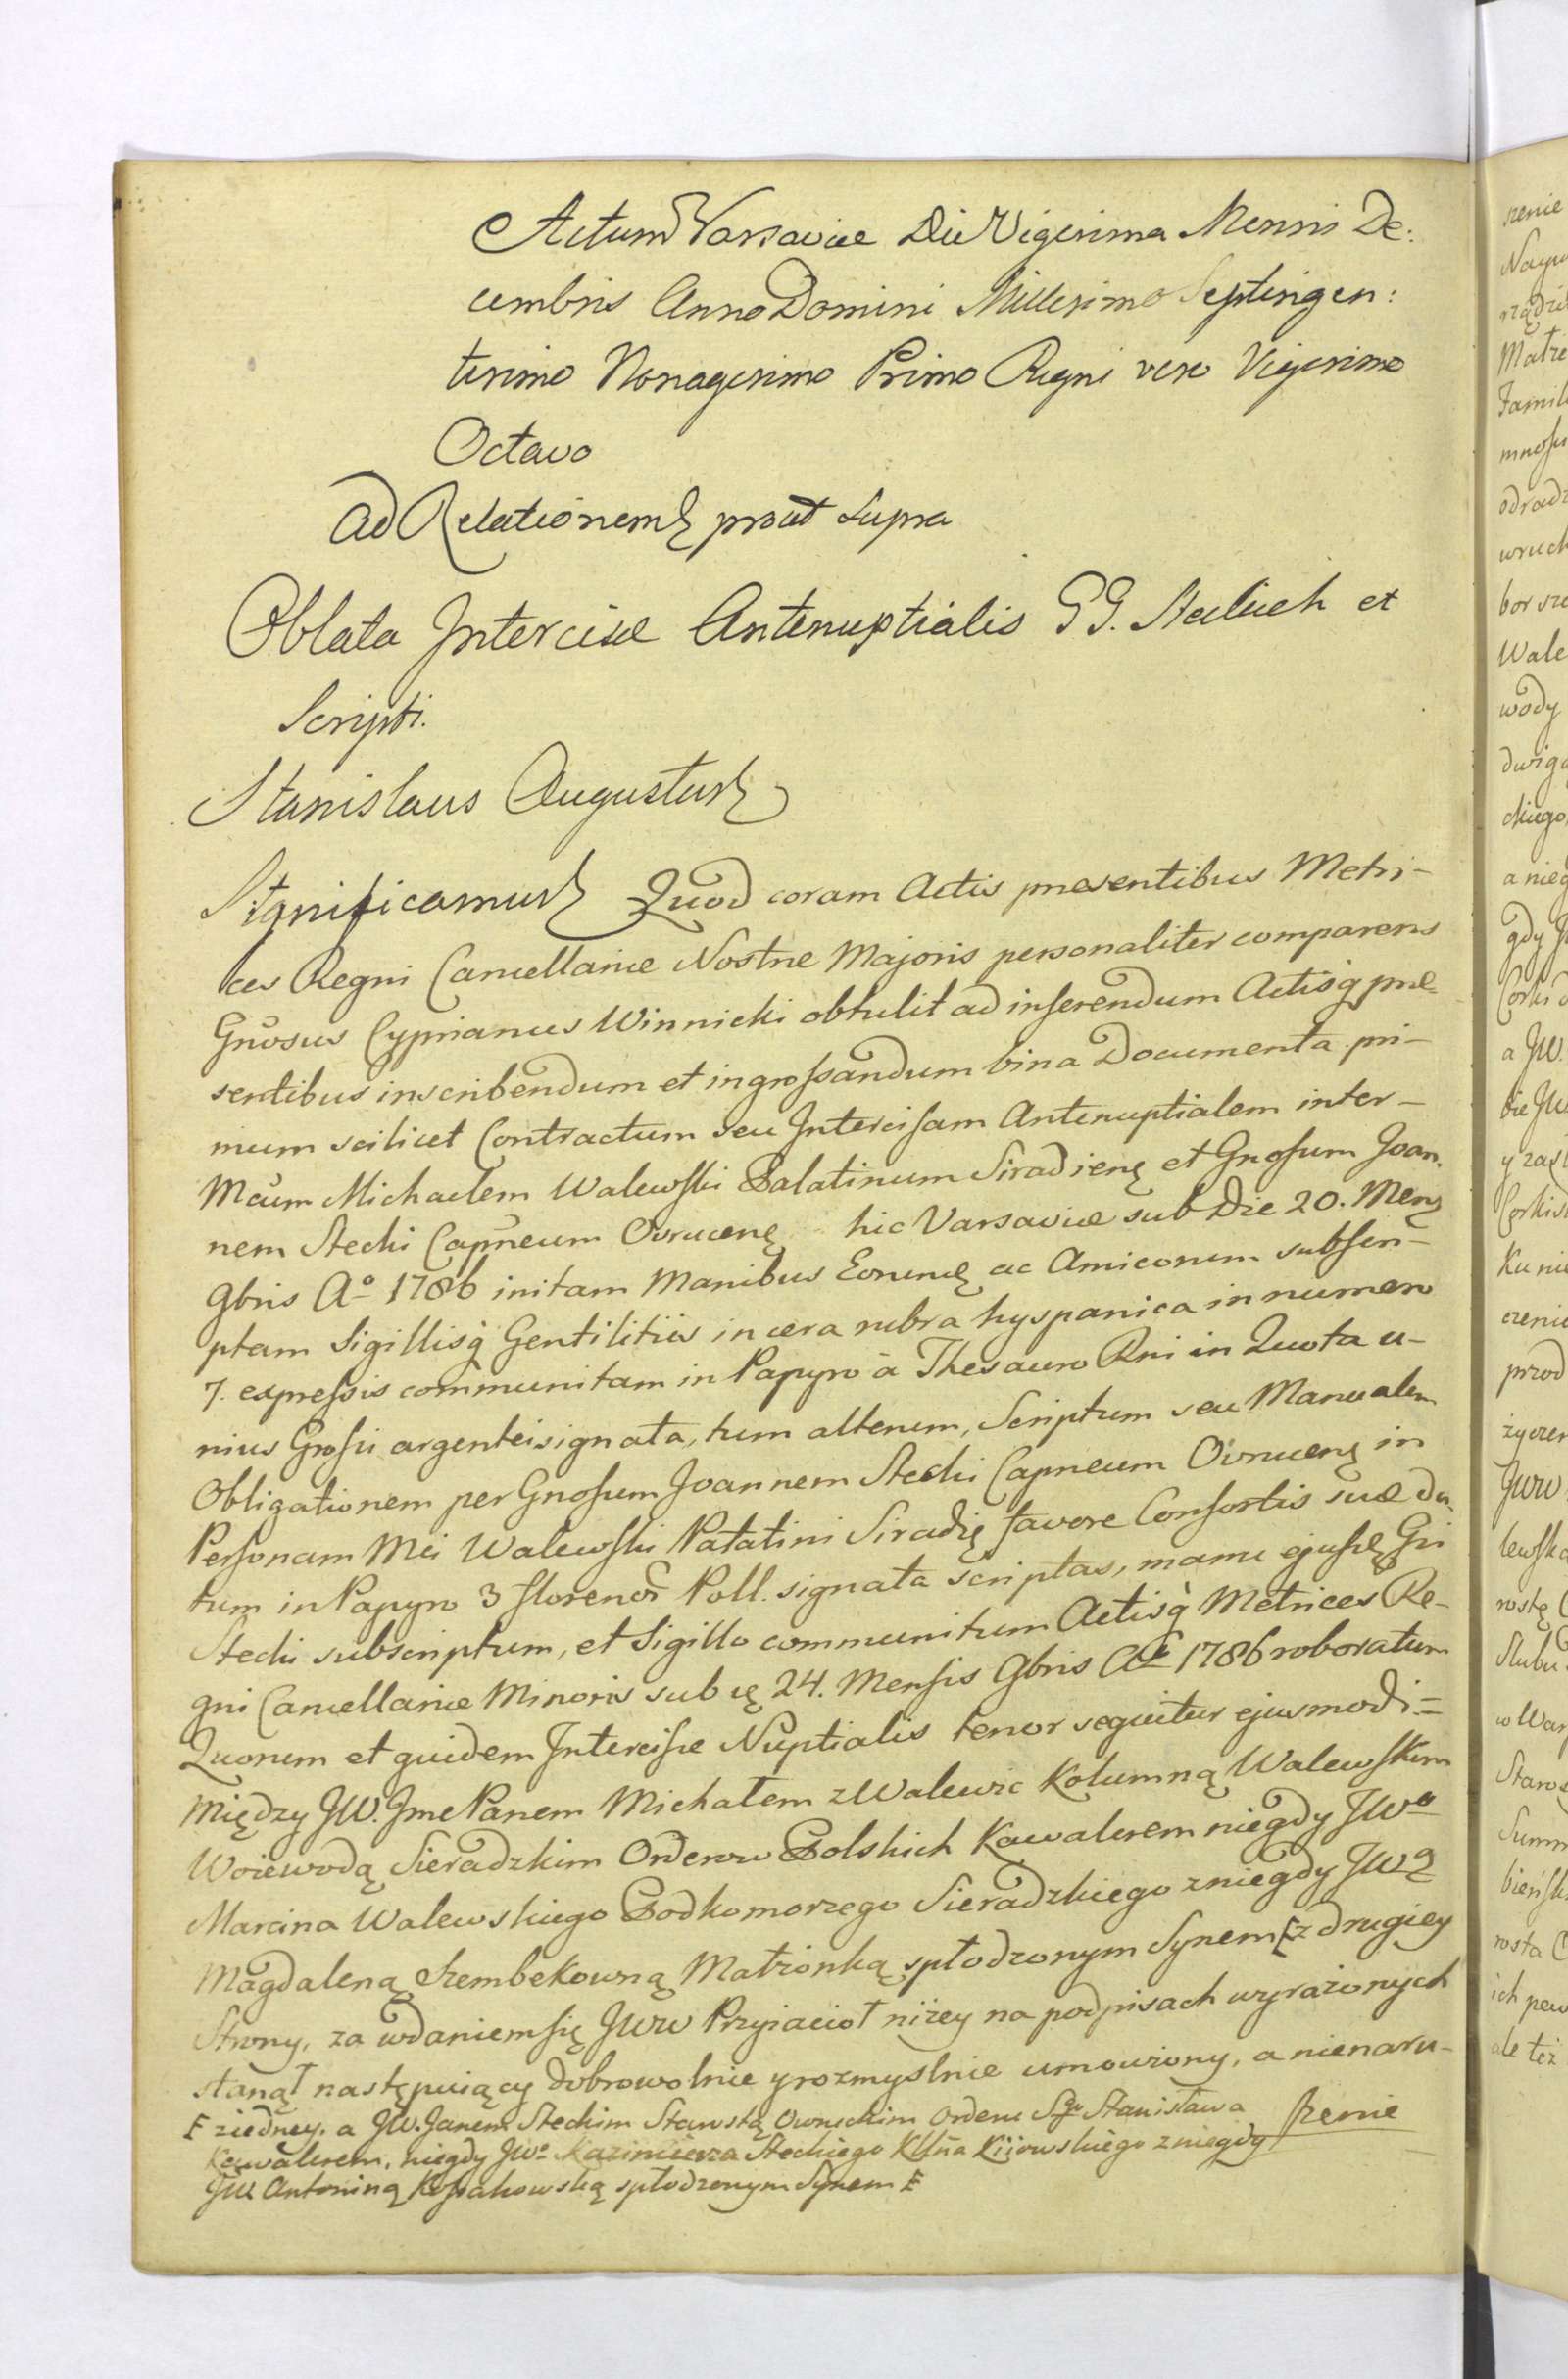 Actum Varsaviæ Die Vigesima Mensis De:
cembris Anno Domini Millesimo Septingen:
tesimo Nonagesimo Primo Regni vero Vigesimo
Octavo
Ad Relationem prout supra
Oblata Intercisæ Antenuptialis GG. Steckich et
Scripti.
Stanislaus Augustus
Significamus Quod coram Actis præsentibus Metri-
ces Regni Cancellariæ Nostræ Majoris personaliter comparens
Gnosus Cyprianus Winnicki obtulit ad inserendum Actisq præ-
sentibus inscribendum et ingrossandum bina Documenta pri-
mum scilicet Contractum seu Intercisam Antenuptialem inter-
Mcum Michaelem Walewski Palatinum Siradienę et Gnosum Joan-
nem Stecki Capneum Ovrucenę hic Varsaviæ sub Die 20. Menę
9bris Ao 1786 initam Manibus Eorumę ac Amicorum subscri-
ptam Sigillisq Gentilitiis in cera rubra hyspanica in numero
7. expressis communitam in Papyro à Thesauro Rni in Quota u-
nius Grossi argentei signata, tum alterum, Scriptum seu Manualem
Obligationem per Gnosum Joannem Stecki Capneum Ovrucenę in
Personam Mci Walewski Palatini Siradię favore Consortis suæ da-
tum in Papyro 3 florenor Poll. signata scriptas, manu ejusdę Gri
Stecki subscriptum, et Sigillo communitum Actisq Metrices Re-
gni Cancellariæ Minoris sub ię 24. Mensis 9bris Ao 1786 roboratum
Quorum et quidem Intercisæ Nuptialis tenor sequitur ejusmodi =
Między JW. Jme Panem Michałem z Walewic Kolumną Walewskim
Woiewodą Sieradzkim Orderow Polskich Kawalerem niegdy JWo
Marcina Walewskiego Podkomorzego Sieradzkiego z niegdy JWą
Magdaleną Szembekowną Małżonką spłodzonym Synem F z drugiey
Strony, za wdaniem się JWW Przyiacioł niżey na podpisach wyrażonych
stanął następuiący dobrowolnie y rozmyslnie umowiony, a nienaru-
F z iedney, a JW. Janem Steckim Starostą Owruckim Orderu Sgo Stanisława szenie
Kawalerem, niegdy JWo Kazimierza Steckiego Kllna Kiiowskiego z niegdy
JW Antoniną Kossakowską spłodzonym Synem F
szenie
Nayw
rządzi
Małże
Famil
mnoss
odradz
wruck
bor sze
Wale
wody
dwiga
ckiego
a nieg
gdy J
Corki
a JW.
bie JW
y zas
Corkis
Ku nie
czenie
przod
życzen
JWW
lewska
rostę
Slubu
w War
Staros
Summ
bieńsk
rosta
ich pew
ale też